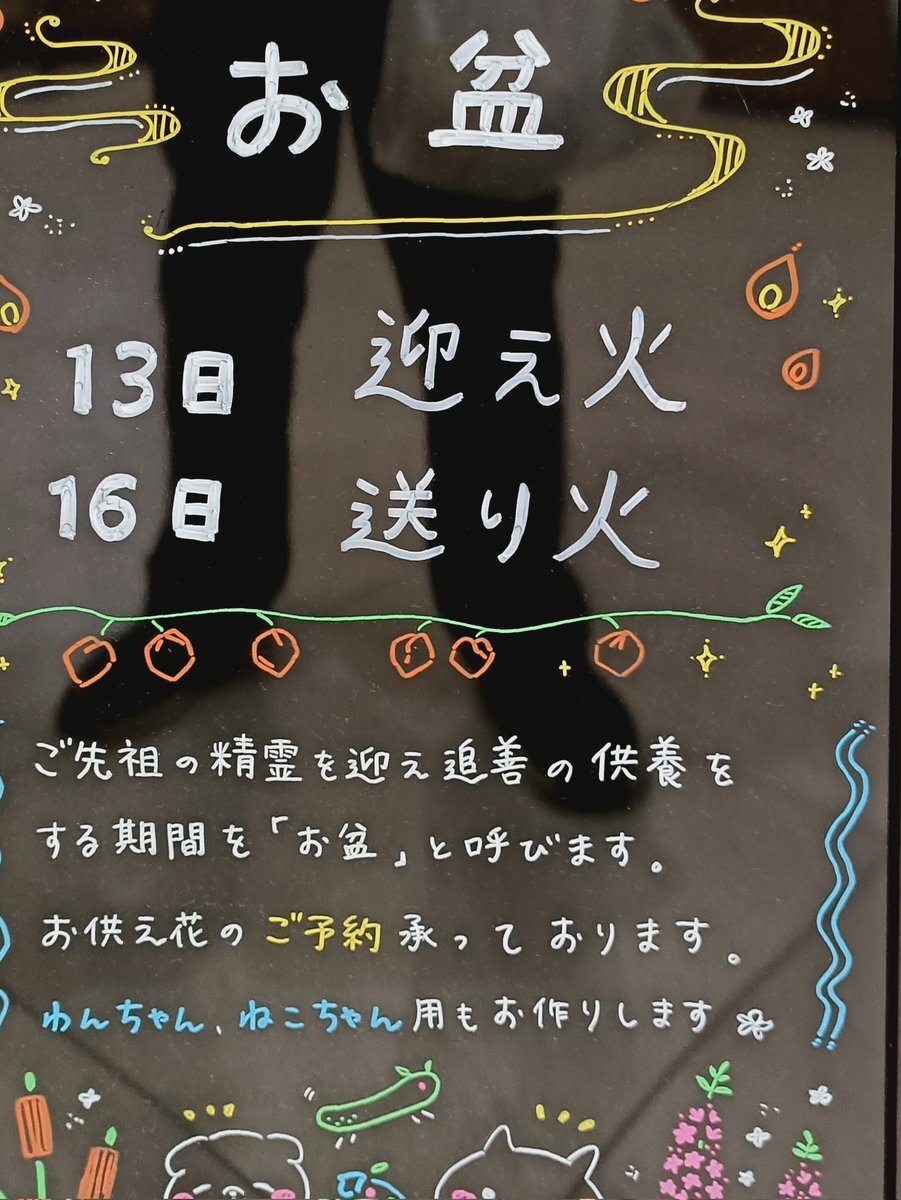 お盆
13日 迎え火
16日 送り火
ご先祖の精霊を迎え追善の供養を
する期間を「お盆」と呼びます。
お供え花のご予約承っております。
わんちゃん、ねこちゃん用もお作りします